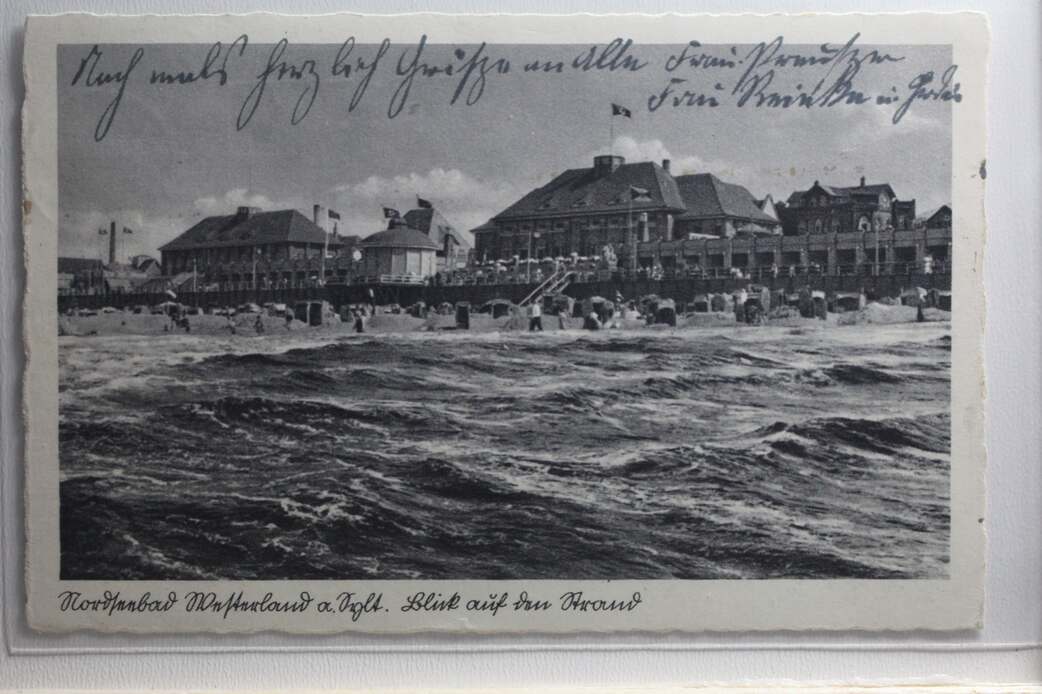 Nach mals herzlich Grüsze an Alle Frau Preutzer
Frau Reinke u.
Nordseebad Westerland a. Sylt. Blick auf den Strand